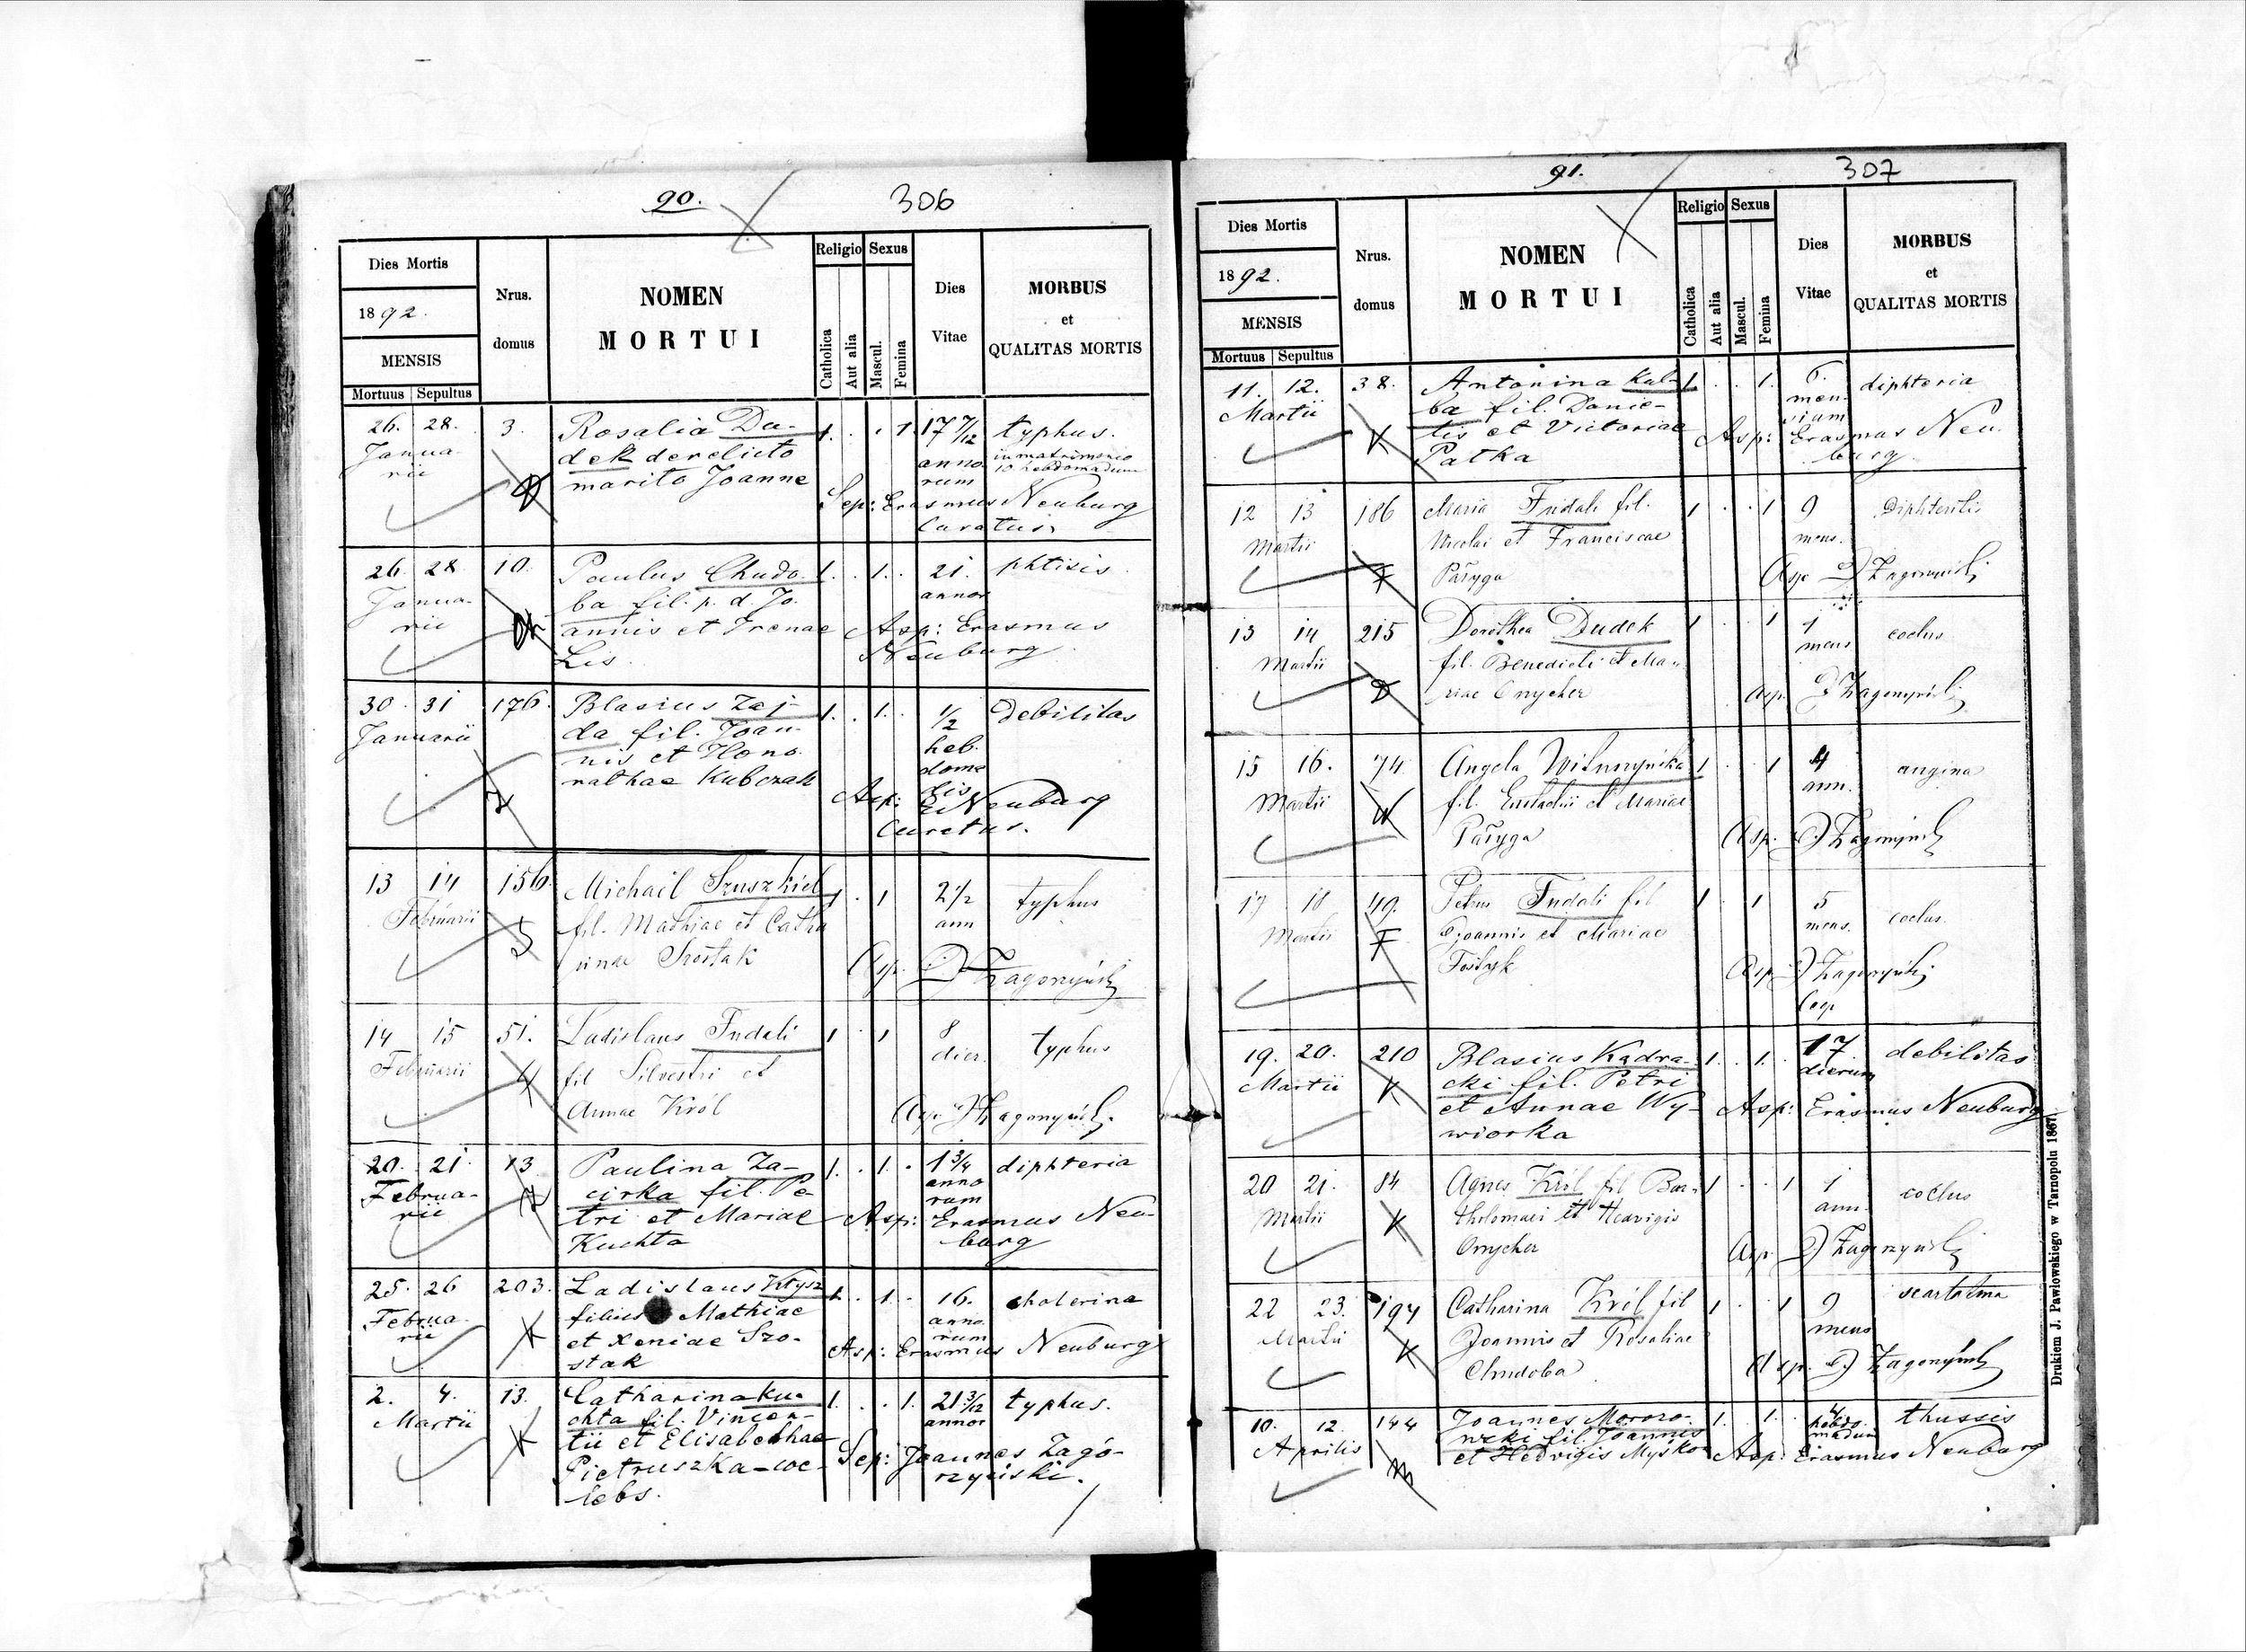 90.
306
Dies Mortis
1892.
MENSIS
Mortuus Sepultus
Nrus.
domus
NOMEN
MORTUI
Religio Sexus
Catholica
Aut alia
Mascul.
Femina
Dies
Vitae
MORBUS
et
QUALITAS MORTIS
26. 28. 3. Rosalia Du- 1. . . 1. 17 7/12 typhus.
Janua- dek derelicto anno in matrimonio
rii marito Joanne rum 10 hebdomadum
Sep: Erasmus Neuburg
Curatus.
26. 28 10. Paulus Chudo- 1. . 1. . 21. phtisis
Janua- ba fil. p. d. Jo- annor
rii annis et Irenae Asp: Erasmus
Lis. Neuburg.
30. 31 176. Blasius Zaj- 1. . 1. . 1/2 debilitas
Januarii da fil. Joan- heb.
nis et Hono- doma
rathae Kubczak dis
Asp: E. Neuburg
Curatus.
13 14 156. Michaël Szuszkiel 1 . 1 2 1/2 typhus
Februarii fil. Mathiae et Catha ann
rinae Szostak Asp. Zagorzyński
14 15 51. Ladislaus Fudali 1 . 1 8 typhus
Februarii fil Silvestri et dier.
Annae Król Asp. Zagorzyński
20. 21. 13 Paulina Za- 1. . 1. . 1 3/4 diphteria
Februa- cirka fil. Pe- anno
rii tri et Mariae rum
Kuchta Asp: Erasmus Neu-
burg
25. 26 203. Ladislaus Kłysz 1. . 1. . 16. cholerina
Februa- filius Mathiae anno
rii et Xeniae Szo- rum
stak Asp: Erasmus Neuburg
2. 4. 13. Catharina Ku- 1. . . 1. 21 3/12 typhus.
Martii chta fil. Vincen- annor
tii et Elisabethae
Pietruszka-coe- Sep: Joannes Zagó-
lebs. rzyński.
91.
307
Dies Mortis
1892.
MENSIS
Mortuus Sepultus
Nrus.
domus
NOMEN
MORTUI
Religio Sexus
Catholica
Aut alia
Mascul.
Femina
Dies
Vitae
MORBUS
et
QUALITAS MORTIS
11. 12. 38. Antonina Kul- 1. . . 1. 6. diphteria
Martii ba fil. Danie- men-
lis et Victoriae sium
Patka Asp: Erasmus Neu-
burg
12 13 186 Maria Fudali fil. 1 . . 1 9 Diphteritis
Martii Nicolai et Franciscae mens.
Paryga Asp Zagorzyński
13 14 215 Dorothea Dudek 1 . 1 1 coclus
Martii fil. Benedicti et Ma- mens
riae Onycher Asp. Zagorzyński
15 16. 74 Angela 1 . 1 4 angina
Martii fil. Eustachii et Mariae ann.
Paryga Asp. Zagorzyński
17 18 49. Petrus Fudali fil 1 . 1 5 coclus
Martii Joannis et Mariae mens.
Asp Zagorzyński
Coop
19. 20. 210 Blasius Kądra- 1. . 1. . 17. debilitas
Martii cki fil. Petri dierum
et Annae Wy- Asp: Erasmus Neuburg
wiorka
20 21. 84 Agnes Król fil Bar- 1 . . 1 1 coclus
Martii tholomaei et Hedvigis ann.
Onycher Asp Zagorzyński
22 23. 197 Catharina Król fil 1 . 1 9 scarlatina
Martii Joannis et Rosaliae mens
Chudoba Asp. Zagorzyński
10. 12. 144 Joannes Mororo- 1. . 1. . 4 thussis
Aprilis wcki fil. Joannis hebdo
et Hedvigis Myśko madum
Asp: Erasmus Neuburg
Drukiem J. Pawłowskiego w Tarnopolu 1867.